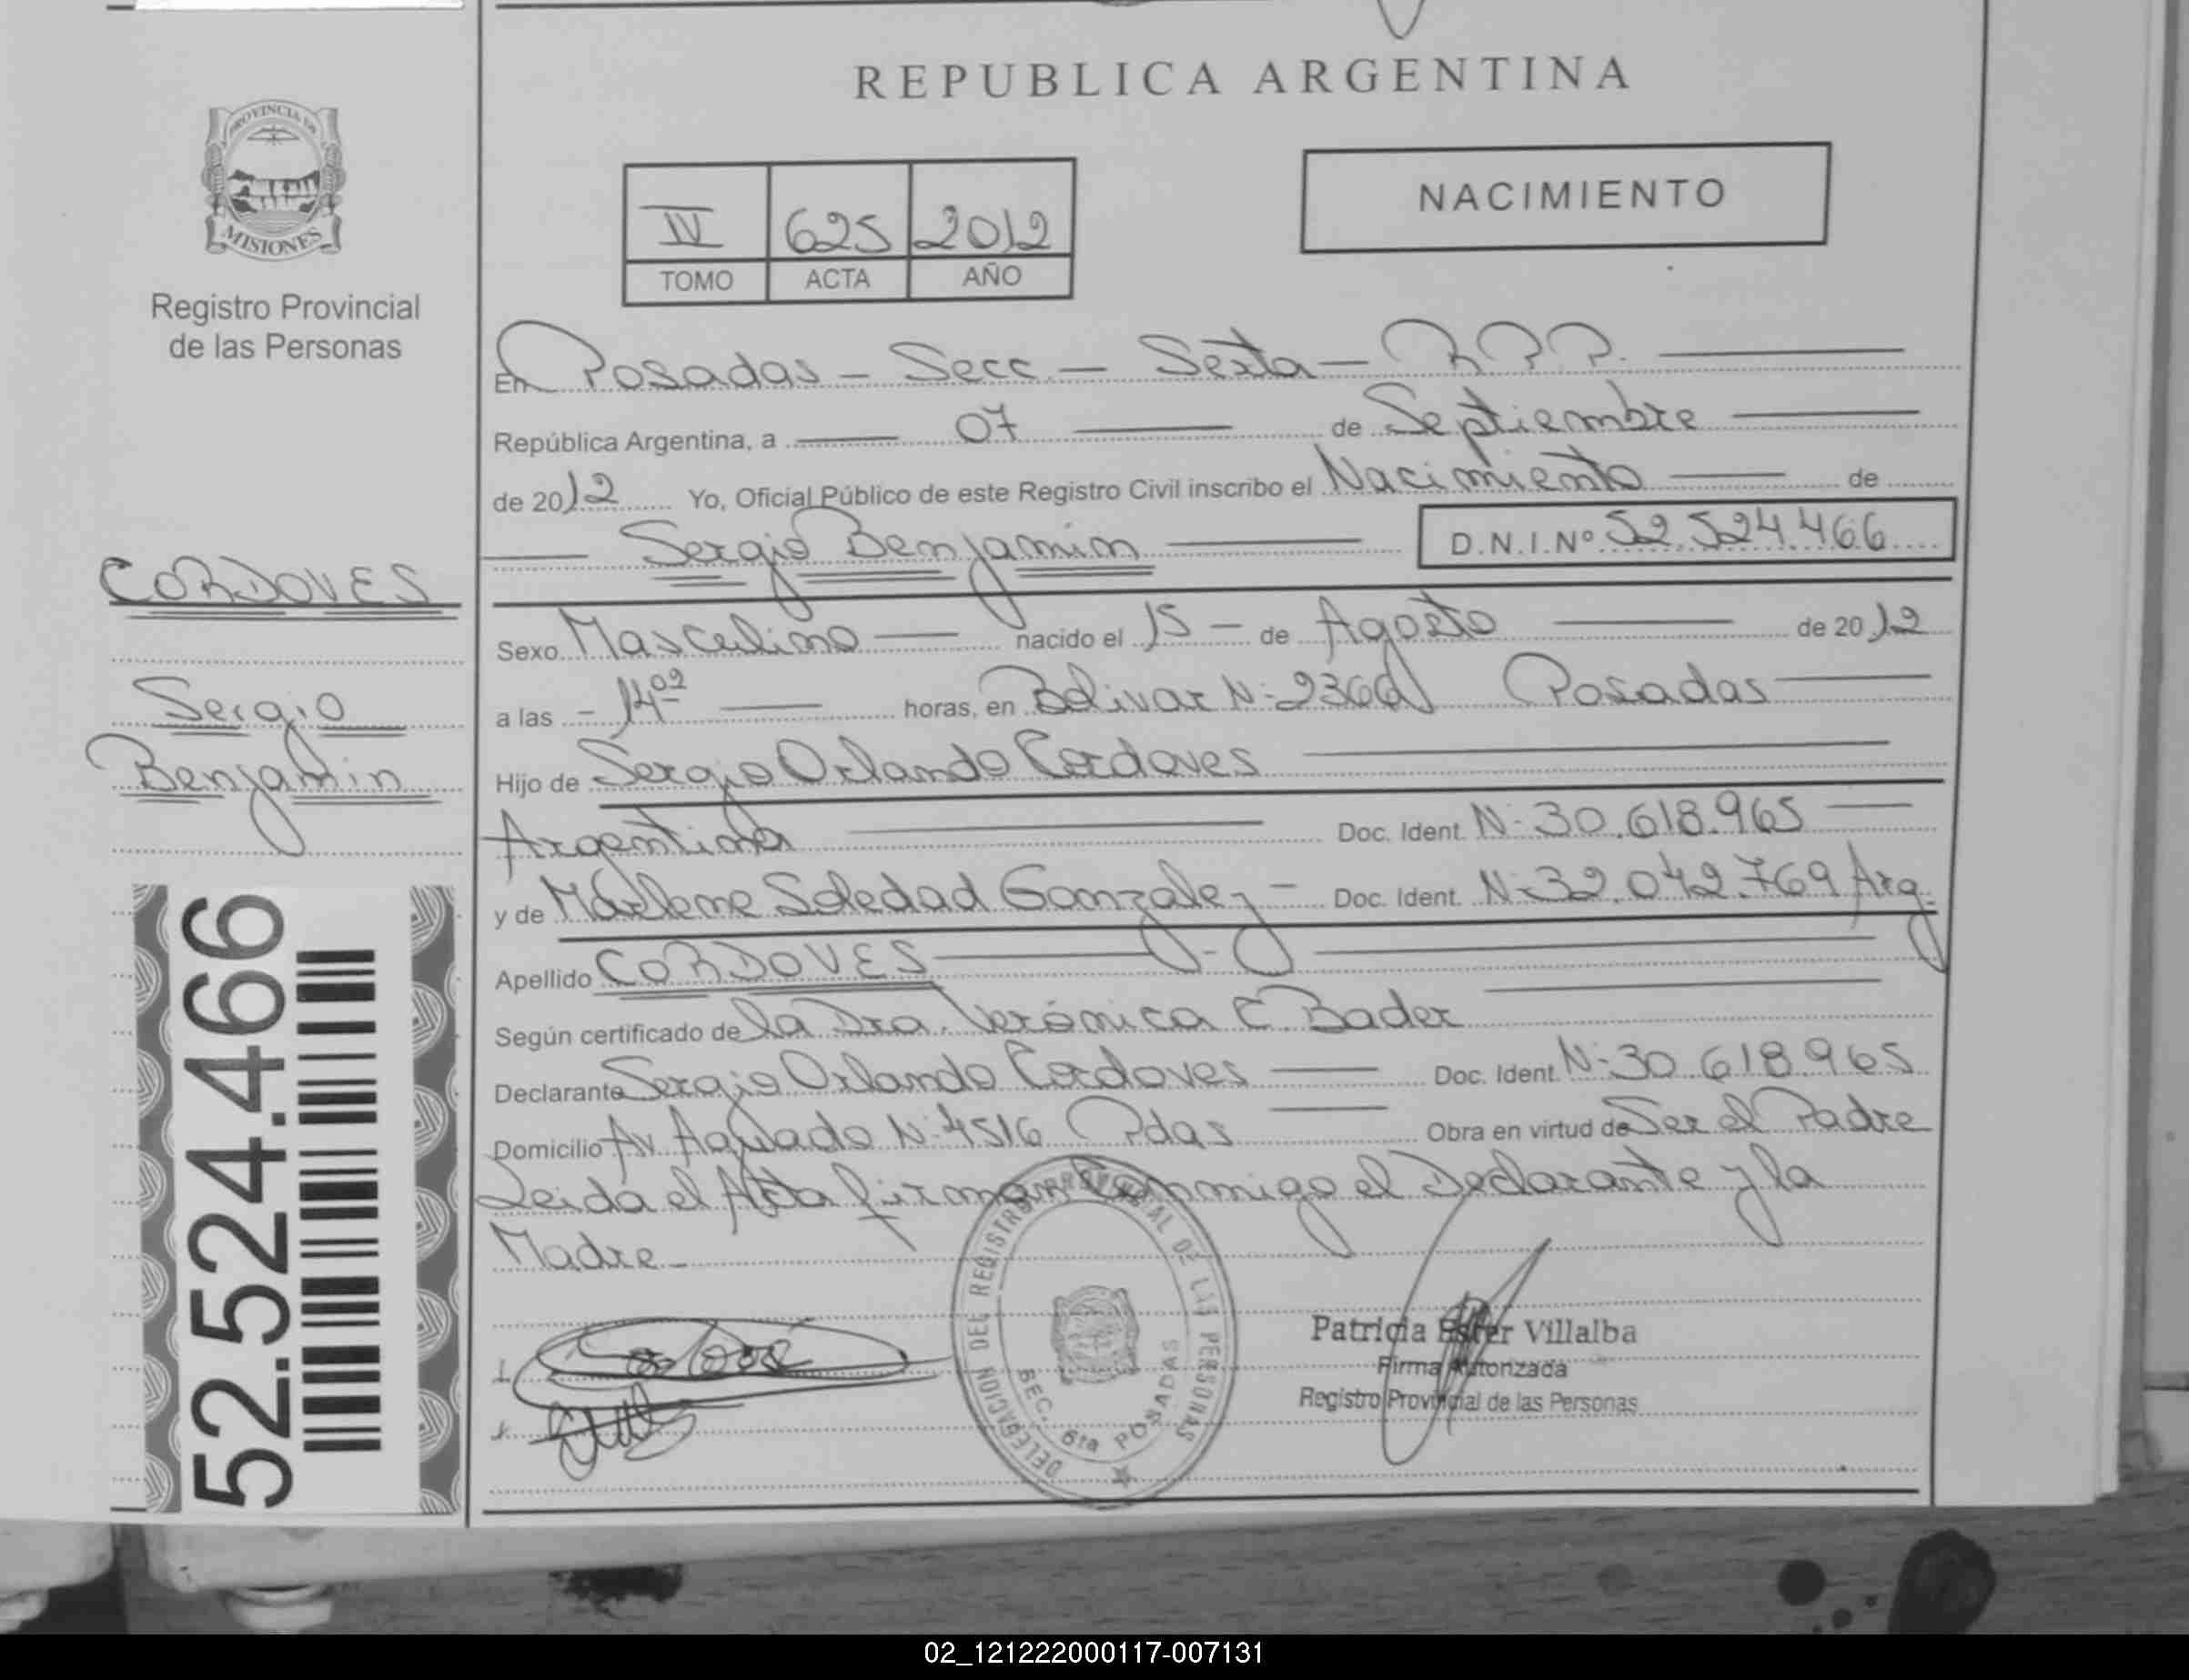 REPUBLICA ARGENTINA
PROVINCIA DE
MISIONES
Registro Provincial
de las Personas
NACIMIENTO
IV 625 2012
TOMO ACTA AÑO
En Posadas - Secc. - Sexta - R.P.P.
República Argentina, a 07 de Septiembre
de 2012 Yo, Oficial Público de este Registro Civil inscribo el Nacimiento de
Sergio Benjamin D.N.I.Nº 52.524.466
CORDOVES
Sergio
Benjamin
52.524.466
Sexo Masculino nacido el 15 - de Agosto de 2012
a las - 14 09 horas, en Bolivar N: 2366 Posadas
Hijo de Sergio Orlando Cordoves
Argentina Doc. Ident. N: 30.618.965
y de Marlene Soledad Gonzalez - Doc. Ident. N: 32.042.769 Arg.
Apellido CORDOVES
Según certificado de la Dra. Verónica E. Bader
Declarante Sergio Orlando Cordoves Doc. Ident. N: 30.618.965
Domicilio Av Aguado N: 4516 Pdas Obra en virtud de Ser el Padre
Leida el Acta firman Conmigo el Declarante y la
Madre -
DELEGACION DEL REGISTRO PROVINCIAL DE LAS PERSONAS
SEC. 6ta POSADAS
Patricia Ester Villalba
Firma Autorizada
Registro Provincial de las Personas
02_121222000117-007131